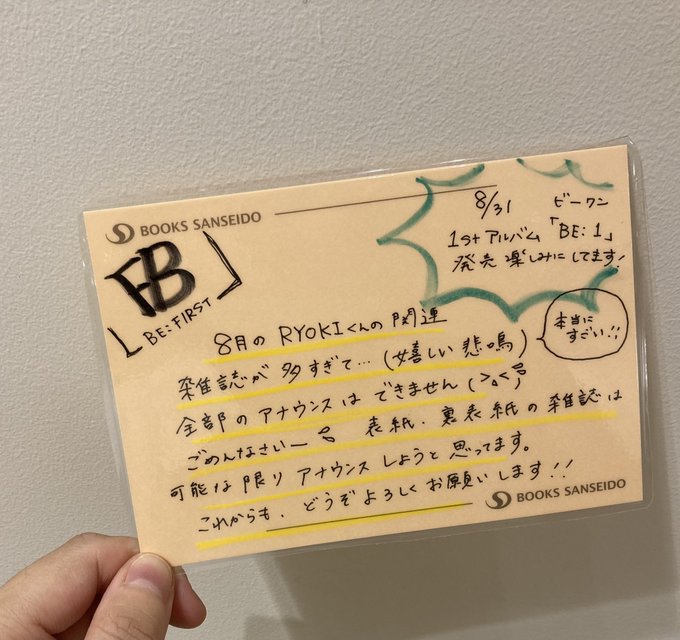 BOOKS SANSEIDO
FB
BE:FIRST
8/31 ビーワン
1stアルバム「BE:1」
発売楽しみにしてます!
8月の RYOKIくんの関連
雑誌が多すぎて…(嬉しい悲鳴)
本当に
すごい!!
全部のアナウンスはできません(>。<)
ごめんなさいー 表紙、裏表紙の雑誌は
可能な限りアナウンスしようと思ってます。
これからも、どうぞよろしくお願いします!!
BOOKS SANSEIDO